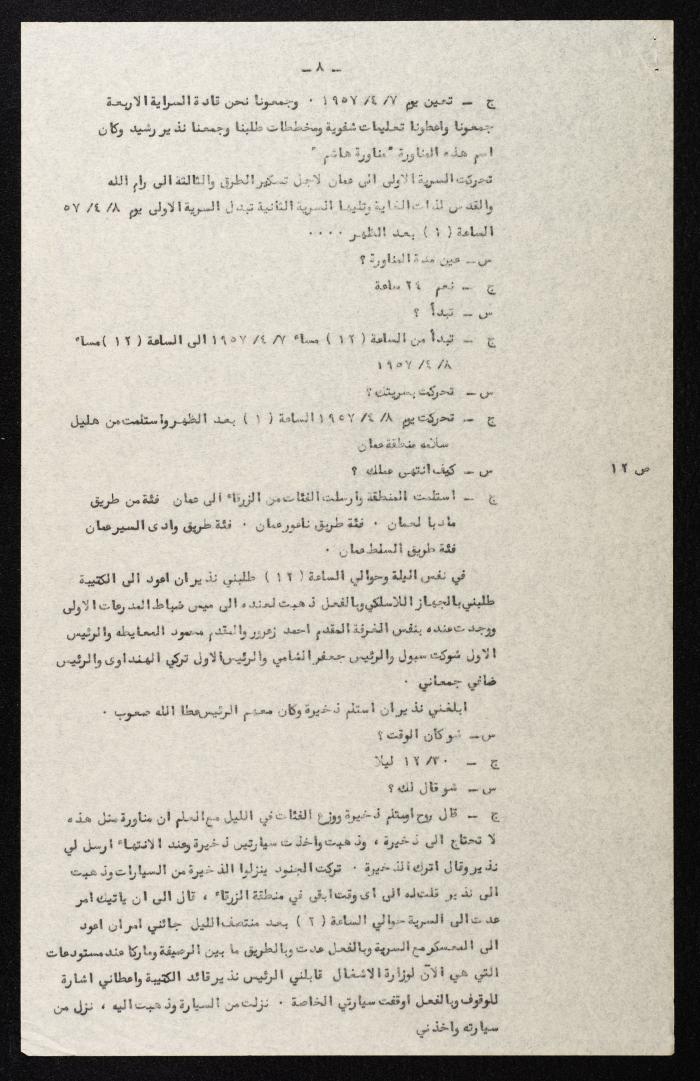 ـ ٨ ـ
ج ـ تعين يوم ٧/ ٤/ ١٩٥٧ ٠ وجمعونا نحن قادة السراية الاربعة
جمعونا واعطونا تعليمات شفوية ومخططات طلبنا وجمعنا نذير رشيد وكان
اسم هذه المناورة "مناورة هاشم "
تحركت السرية الاولى الى عمان لاجل تسكير الطرق والثالثة الى رام الله
والقدس لذات الغاية وتليها السرية الثانية تبدل السرية الاولى يوم ٨/ ٤/ ٥٧
الساعة ( ١ ) بعد الظهر ٠٠٠٠
س ـ عين مدة المناورة ؟
ج ـ نعم ٢٤ ساعة
س ـ تبدأ ؟
ج ـ تبدأ من الساعة ( ١٢ ) مساء ٧/ ٤/ ١٩٥٧ الى الساعة ( ١٢ )مساء
٨/ ٤/ ١٩٥٧
س ـ تحركت بسريتك ؟
ج ـ تحركت يوم ٨/ ٤/ ١٩٥٧ الساعة ( ١ ) بعد الظهر واستلمت من هليل
سلامه منطقة عمان
ص ١٢
س ـ كيف انتهى عملك ؟
ج ـ استلمت المنطقة وارسلت الفئات من الزرقاء الى عمان فئة من طريق
مادبا لعمان ٠ فئة طريق ناعور عمان ٠ فئة طريق وادى السير عمان
فئة طريق السلط عمان ٠
في نفس اليلة وحوالي الساعة ( ١٢ ) طلبني نذير ان اعود الى الكتيبة
طلبني بالجهاز اللاسلكي وبالفعل ذهبت لعنده الى ميس ضباط المدرعات الاولى
ووجدت عنده بنفس الغرفة المقدم احمد زعرور والمقدم محمود المعايطه والرئيس
الاول شوكت سبول والرئيس جعفر الشامي والرئيس الاول تركي الهنداوى والرئيس
ضافي جمعاني ٠
ابلغني نذير ان استلم ذخيرة وكان معهم الرئيس عطا الله صعوب ٠
س ـ شو كان الوقت ؟
ج ـ ١٢/٣٠ ليلا
س ـ شو قال لك ؟
ج ـ قال روح اوستلم ذخيرة ووزع الفئات في الليل مع العلم ان مناورة مثل هذه
لا تحتاج الى ذخيرة ، وذهبت واخذت سيارتين ذخيرة وعند الانتهاء ارسل لي
نذير وقال اترك الذخيرة ٠ تركت الجنود ينزلوا الذخيرة من السيارات وذهبت
الى نذير قلت له الى اى وقت ابقى في منطقة الزرقاء ، قال الى ان ياتيك امر
عدت الى السرية حوالي الساعة ( ٢ ) بعد منتصف الليل جائني امر ان اعود
الى المعسكر مع السرية وبالفعل عدت وبالطريق ما بين الرصيفة وماركا عند مستودعات
التي هي الآن لوزارة الاشغال قابلني الرئيس نذير قائد الكتيبة واعطاني اشارة
للوقوف وبالفعل اوقفت سيارتي الخاصة ٠ نزلت من السيارة وذهبت اليه ، نزل من
سيارته واخذني